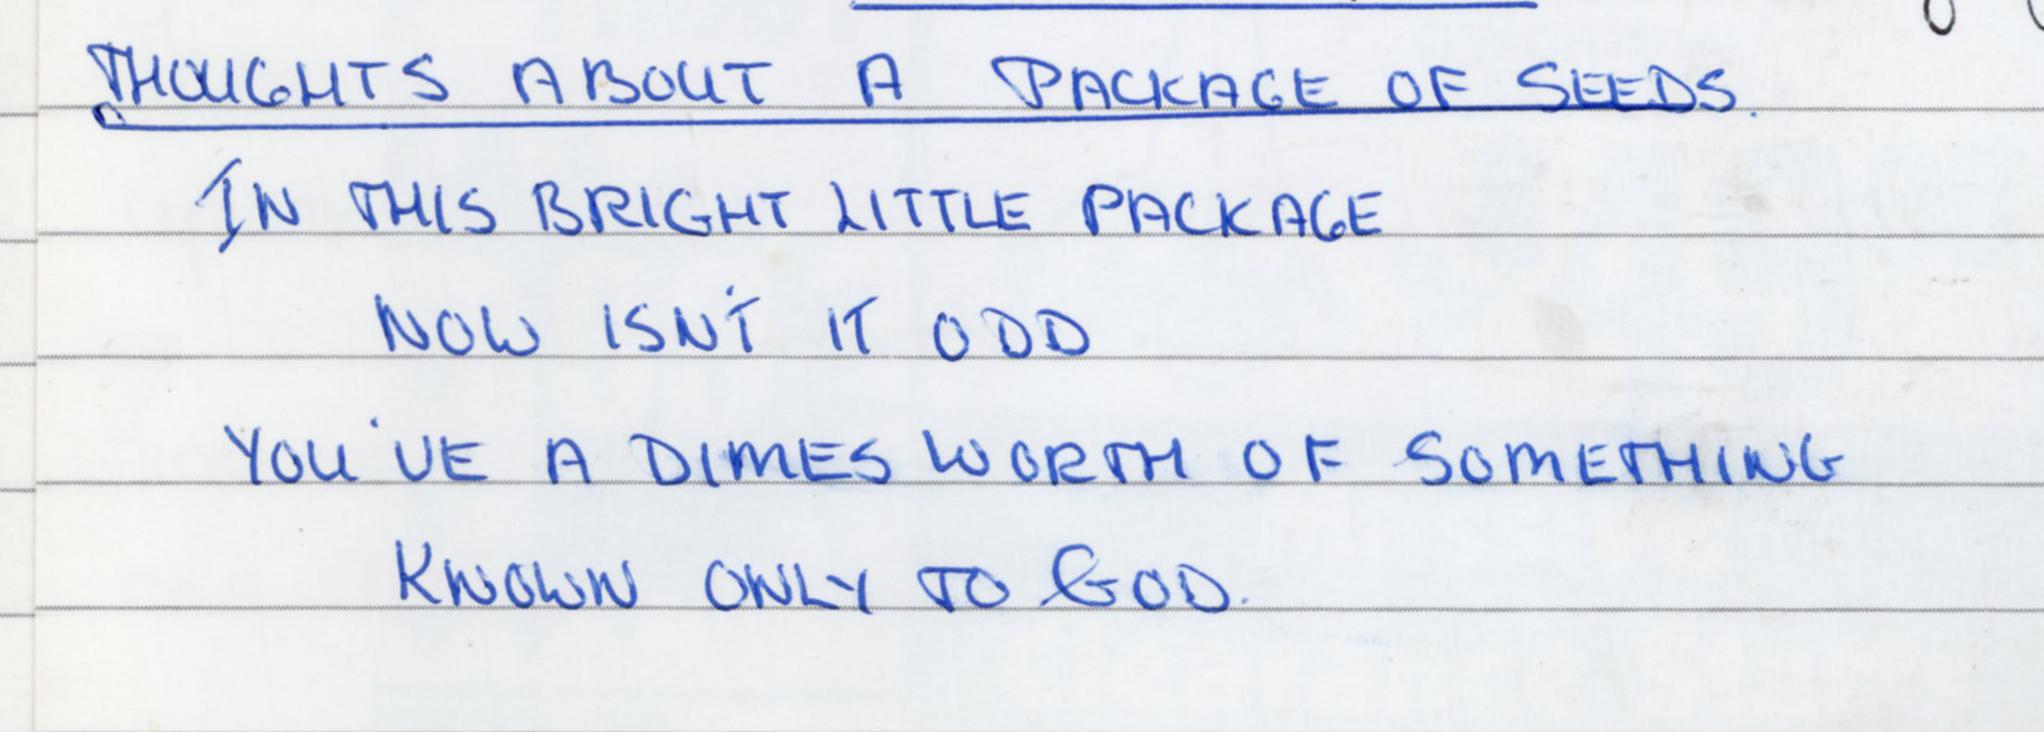 THOUGHTS ABOUT A PACKAGE OF SEEDS.
IN THIS BRIGHT LITTLE PACKAGE
NOW ISN'T IT ODD
YOU'VE A DIMES WORTH OF SOMETHING
KNOWN ONLY TO GOD.